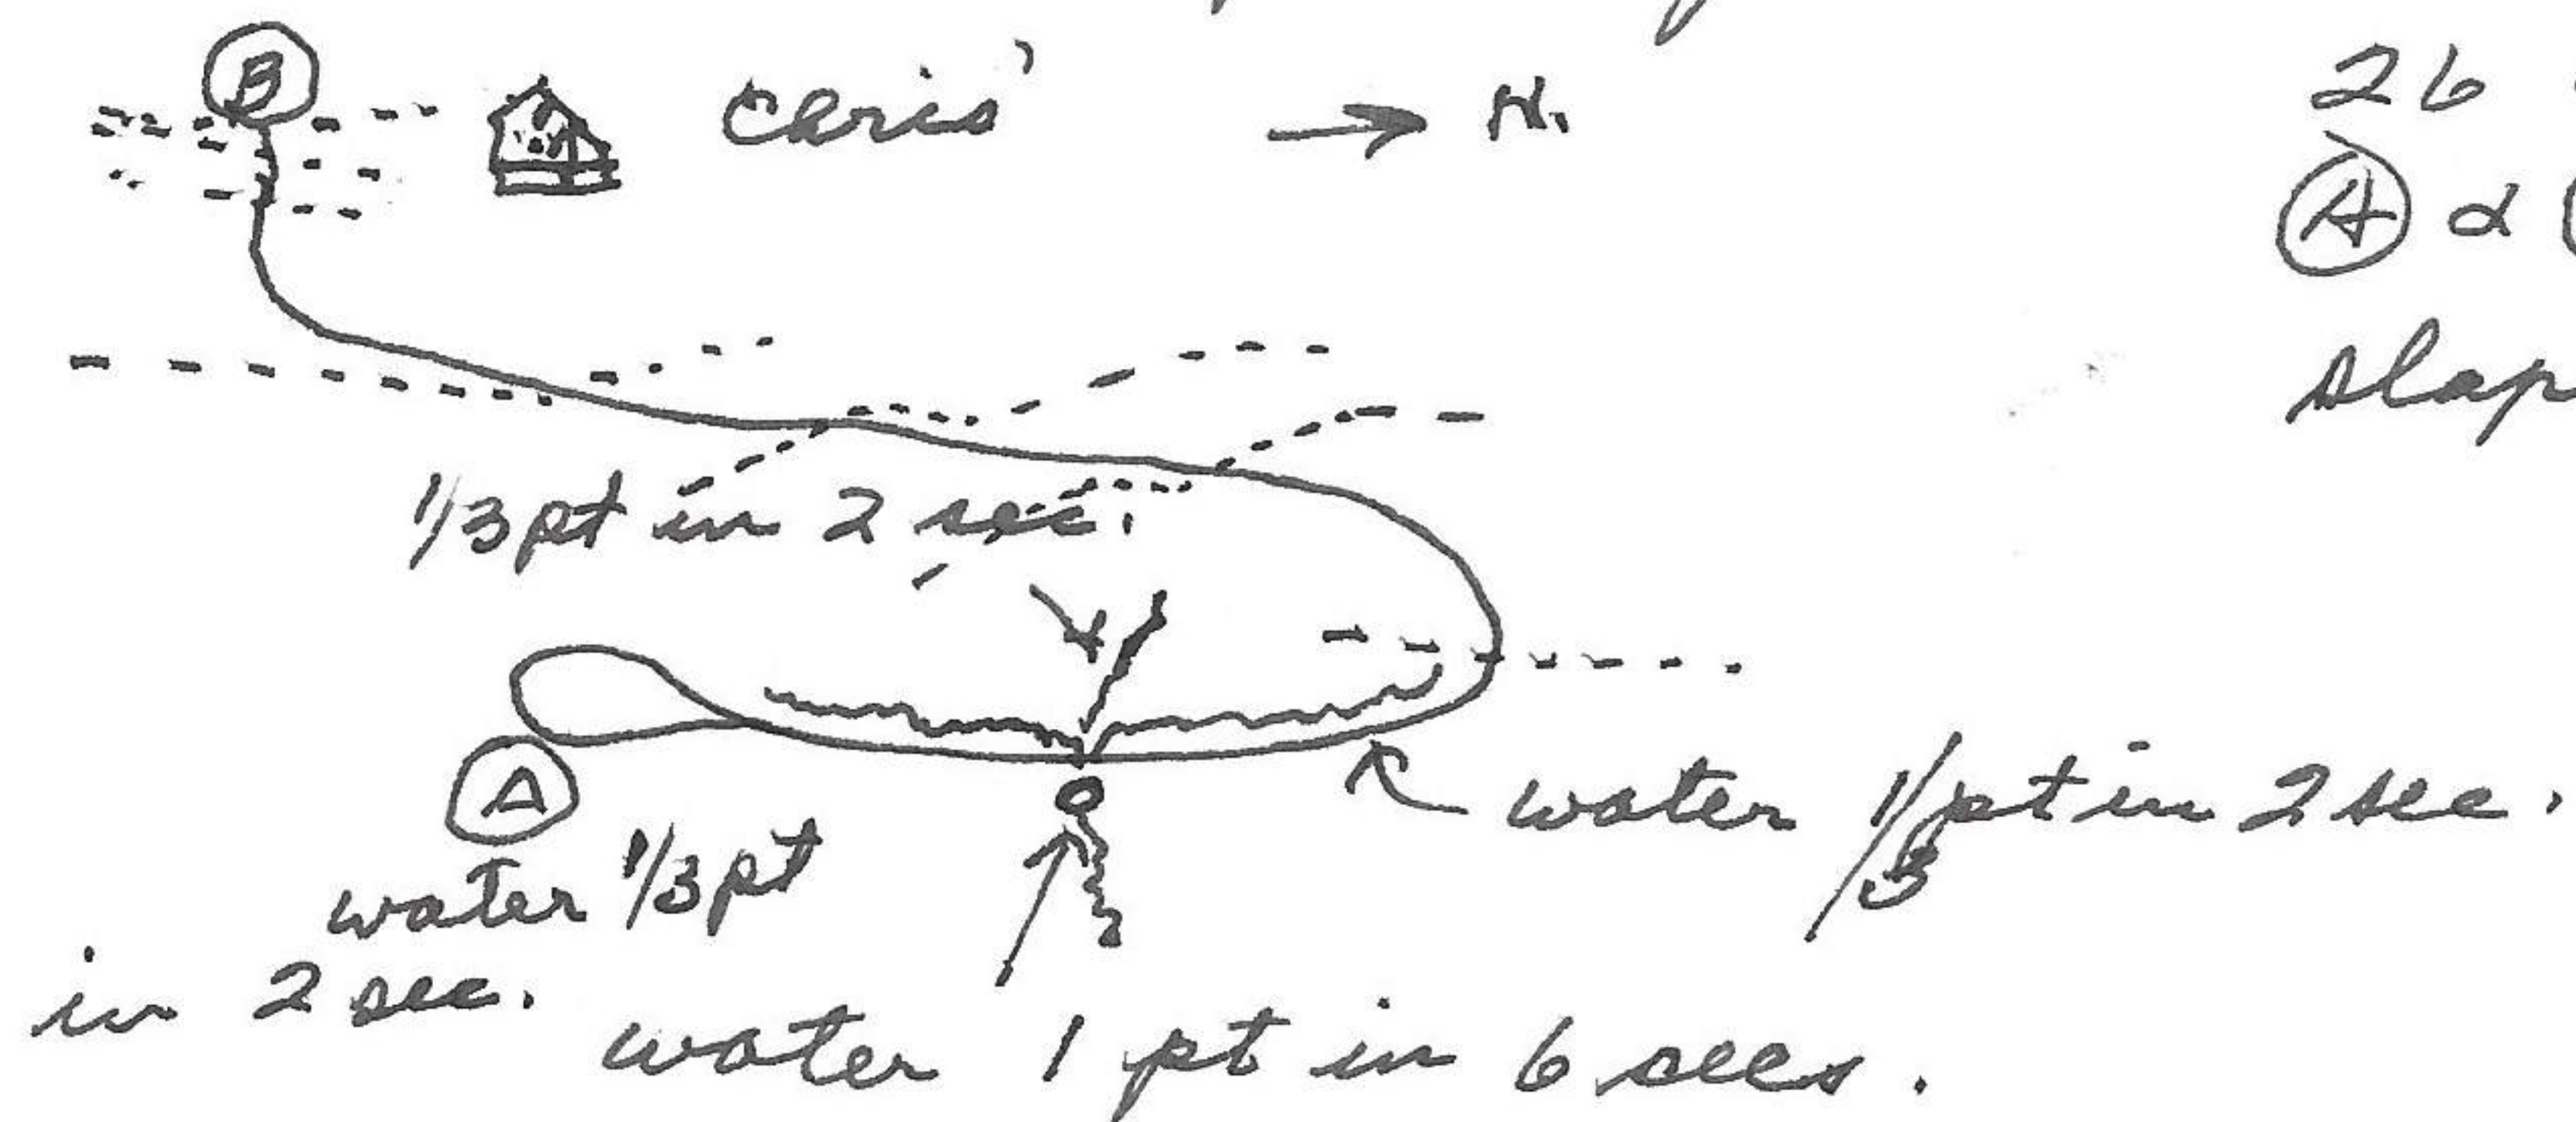 B
Chris'
→ N.
26
A &
slap
1/3 pt in 2 sec.
A
water 1/3 pt
in 2 sec.
water 1/3 pt in 2 sec.
water 1 pt in 6 secs.